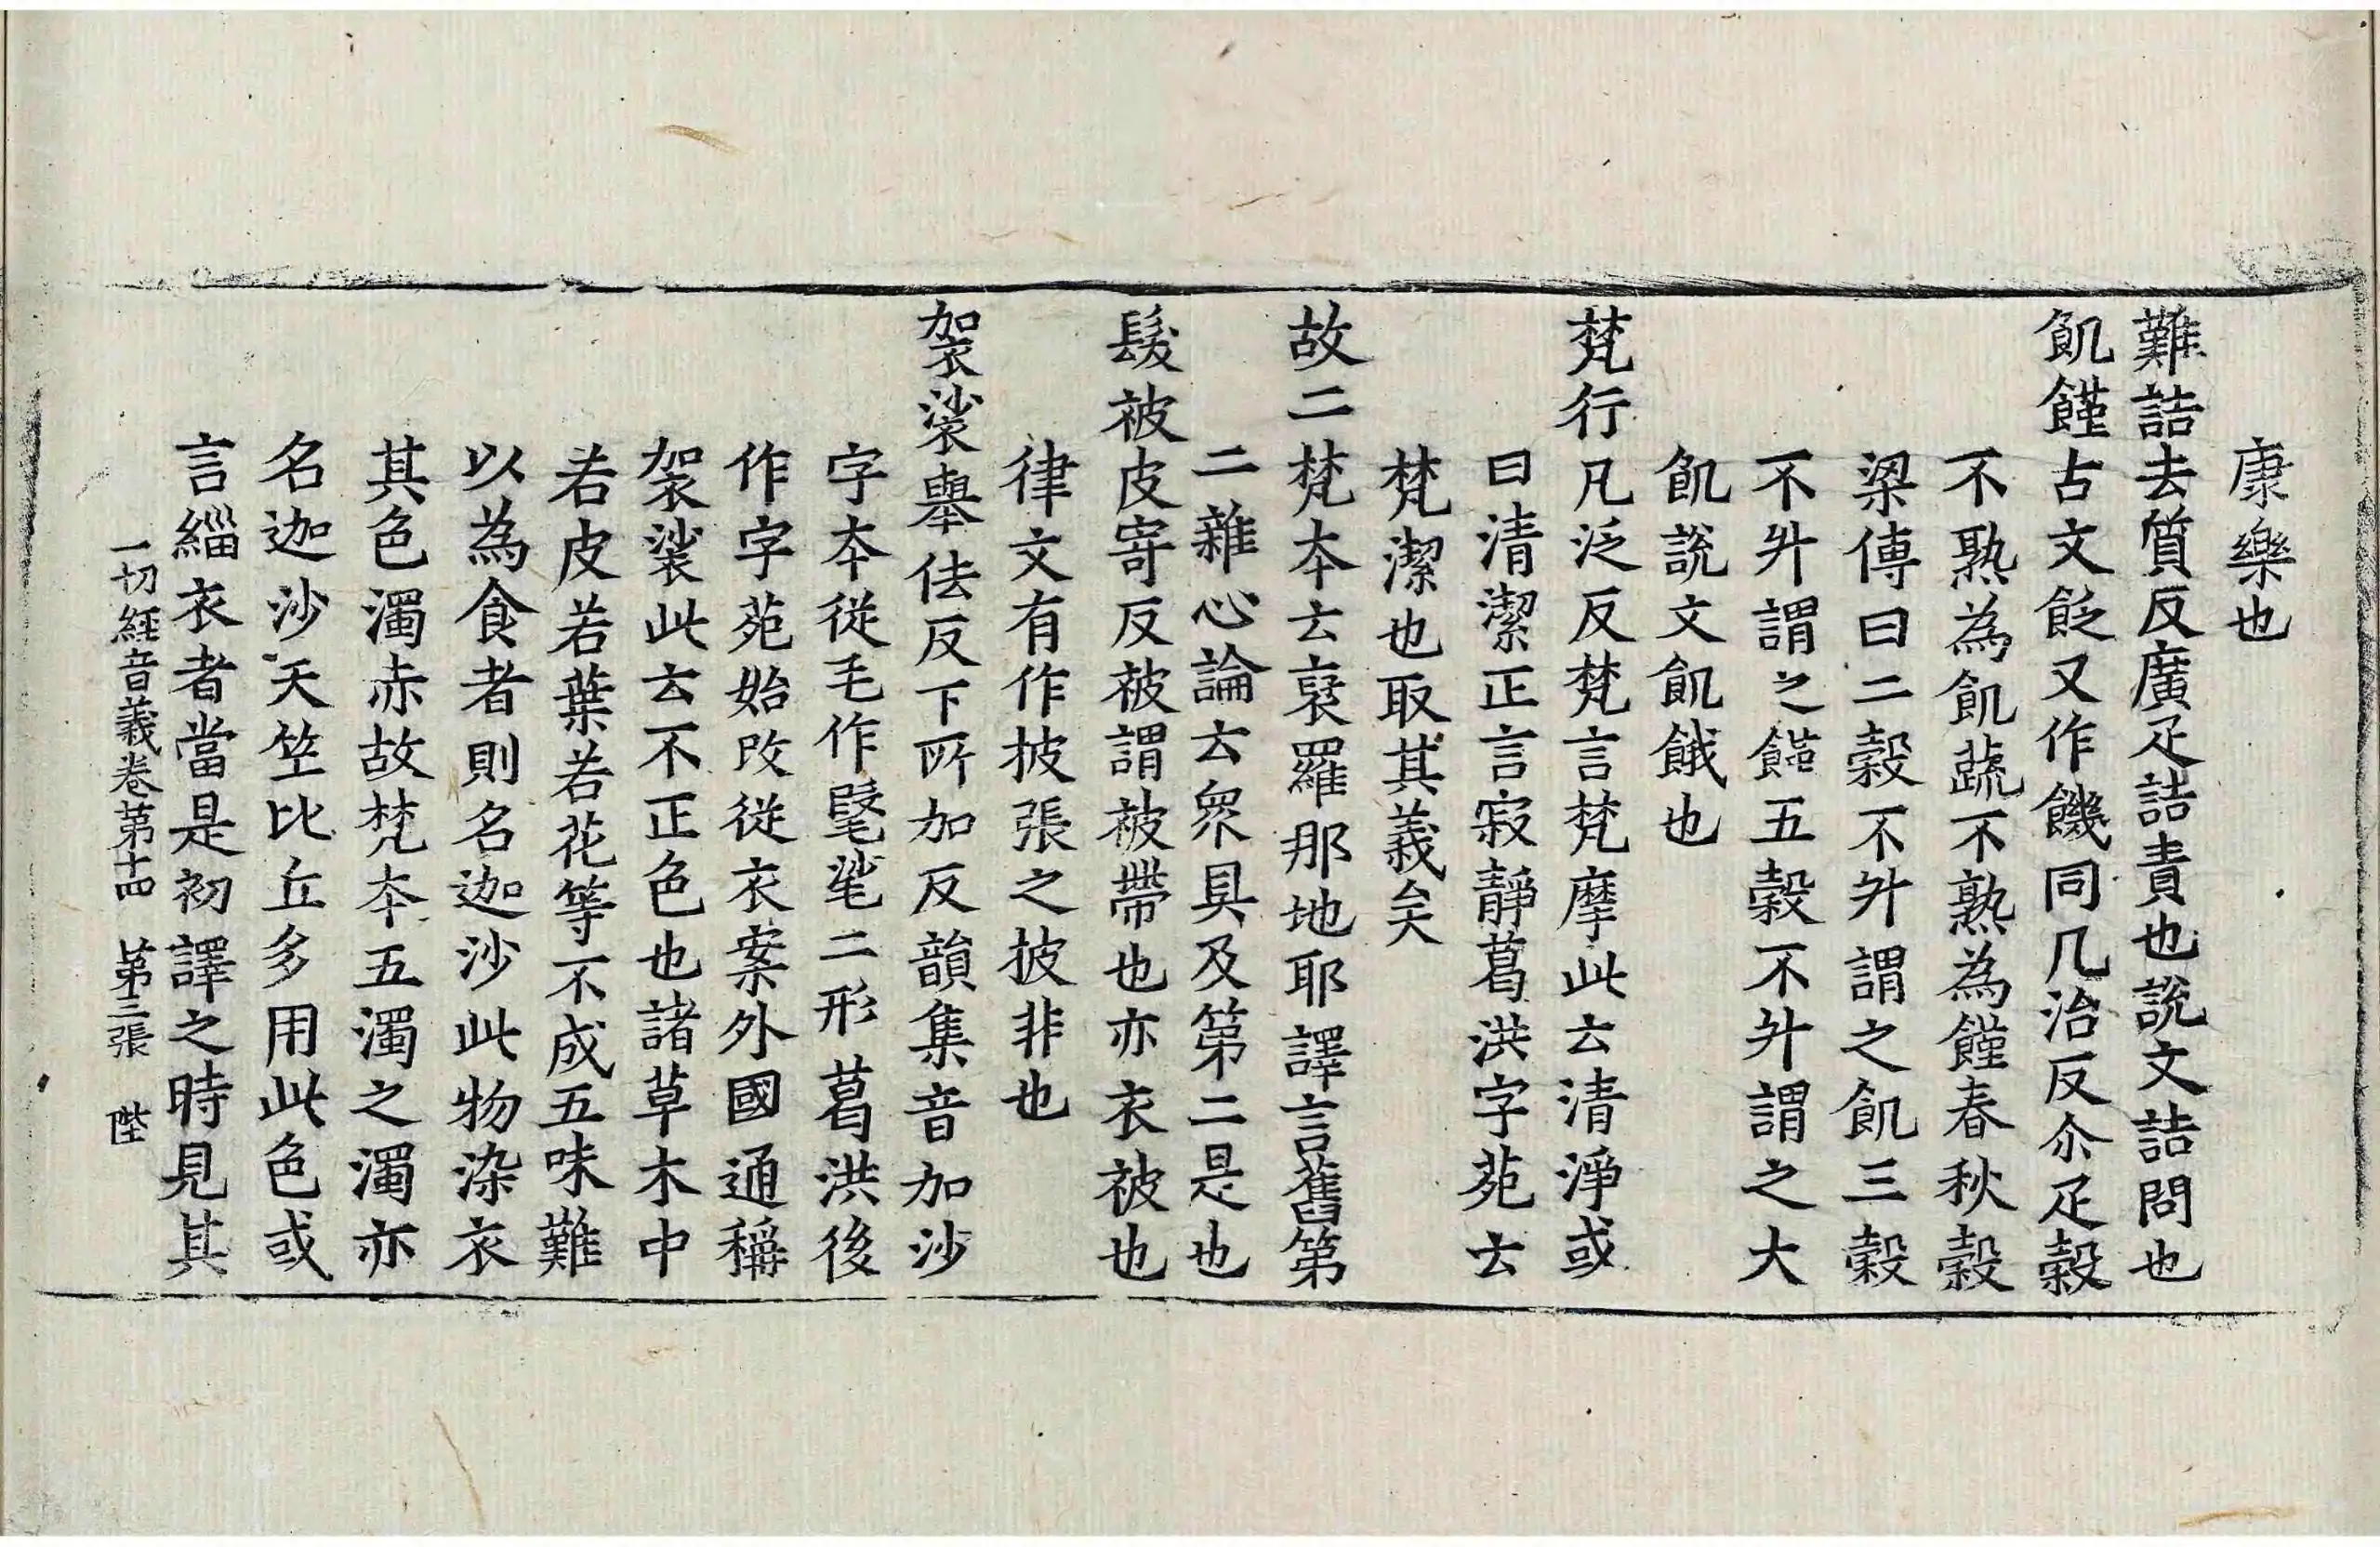 康樂也
難詰去質反廣疋詰責也說文詰問也
飢饉古文飿又作饑同几治反尒疋穀
不熟為飢蔬不熟為饉春秋穀
梁傳曰二穀不升謂之飢三穀
不升謂之饉五穀不升謂之大
飢說文飢餓也
梵行凡泛反梵言梵摩此云清淨或
曰清潔正言寂靜葛洪字苑云
梵潔也取其義矣
故二梵本云裒羅那地耶譯言舊第
二雜心論云衆具及第二是也
髲被皮寄反被謂被帶也亦衣被也
律文有作披張之披非也
袈裟舉佉反下所加反韻集音加沙
字本從毛作㲚㲚二形葛洪後
作字苑始改從衣案外國通稱
袈裟此云不正色也諸草木中
若皮若葉若花等不成五味難
以為食者則名迦沙此物染衣
其色濁赤故梵本五濁之濁亦
名迦沙天竺比丘多用此色或
言緇衣者當是初譯之時見其
一切經音義卷第十四 第三張 陛